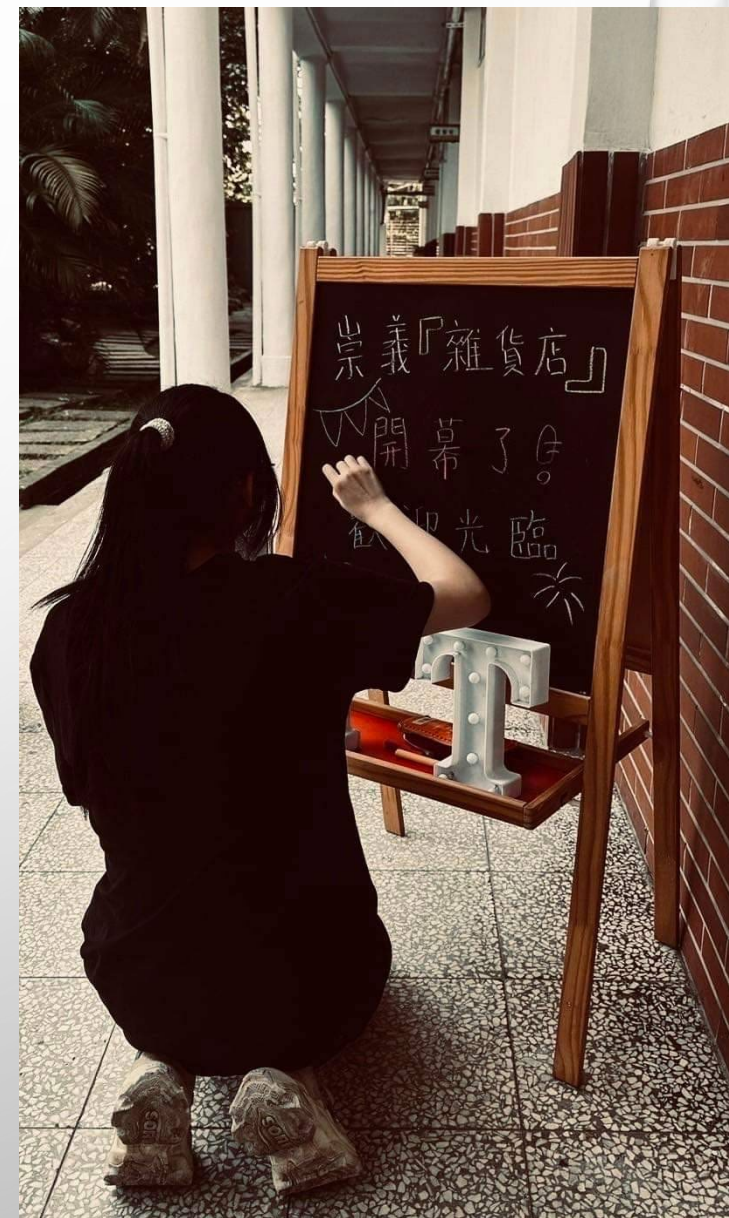 崇義『雜貨店』
開幕了
歡迎光臨
T